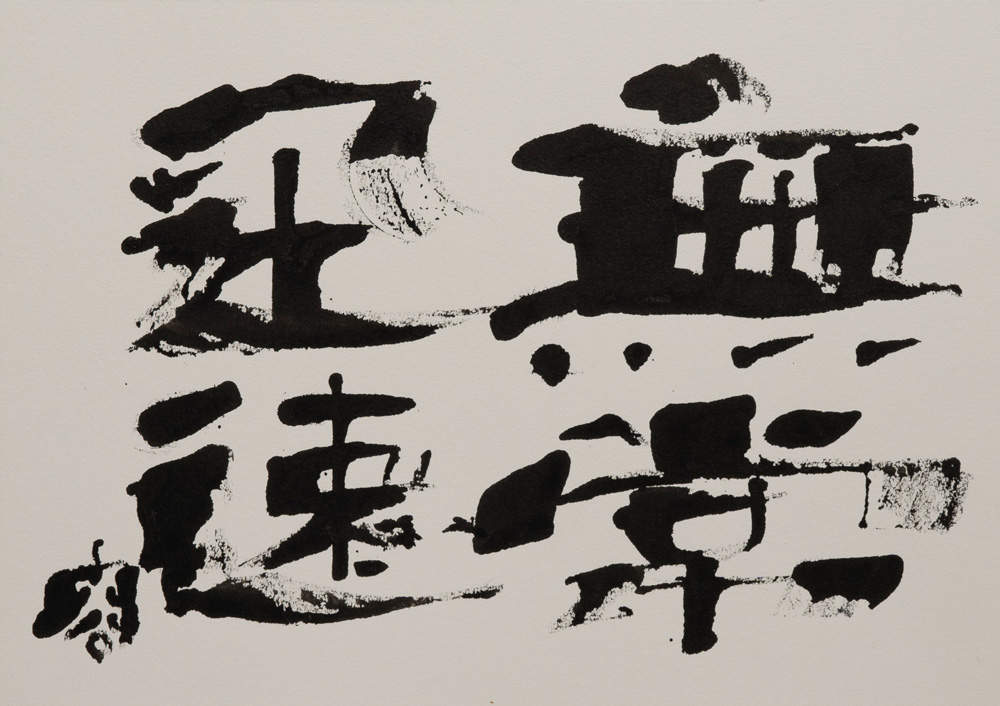 無常
迅速